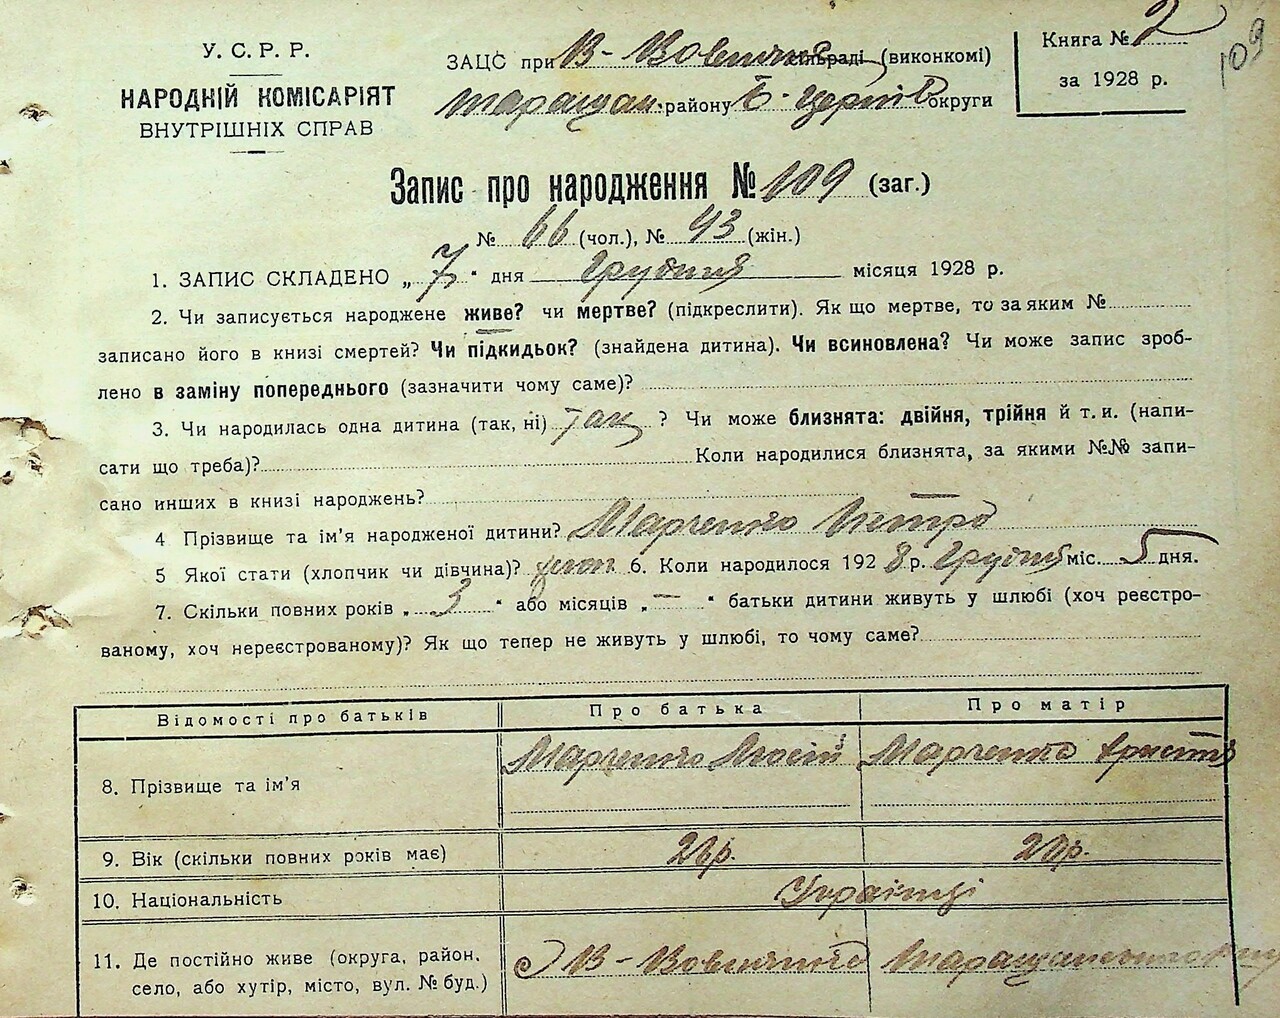 У. С. Р. Р.
НАРОДНІЙ КОМІСАРІЯТ
ВНУТРІШНІХ СПРАВ
ЗАЦС при В-Вовнянсь сільраді (виконкомі)
Таращан. району Б-Церків округи
Книга № 2
за 1928 р.
109
Запис про народження № 109 (заг.)
№ 66 (чол.), № 43 (жін.)
1. ЗАПИС СКЛАДЕНО „7" дня Грудня місяця 1928 р.
2. Чи записується народжене живе? чи мертве? (підкреслити). Як що мертве, то за яким №
записано його в книзі смертей? Чи підкидьок? (знайдена дитина). Чи всиновлена? Чи може запис зроб-
лено в заміну попереднього (зазначити чому саме)?
3. Чи народилась одна дитина (так, ні) так ? Чи може близнята: двійня, трійня й т. и. (напи-
сати що треба)? Коли народилися близнята, за якими №№ запи-
сано инших в книзі народжень?
4 Прізвище та ім'я народженої дитини? Марченко Петро
5 Якої стати (хлопчик чи дівчина)? хлоп 6. Коли народилося 1928 р. Грудня міс. 5 дня.
7. Скільки повних років „3" або місяців „—" батьки дитини живуть у шлюбі (хоч реєстро-
ваному, хоч нереєстрованому)? Як що тепер не живуть у шлюбі, то чому саме?
Відомості про батьків Про батька Про матір
8. Прізвище та ім'я Марченко Мосій Марченко Христя
9. Вік (скільки повних років має)
10. Національність Українці
11. Де постійно живе (округа, район, В-Вовнянка
село, або хутір, місто, вул. № буд.)